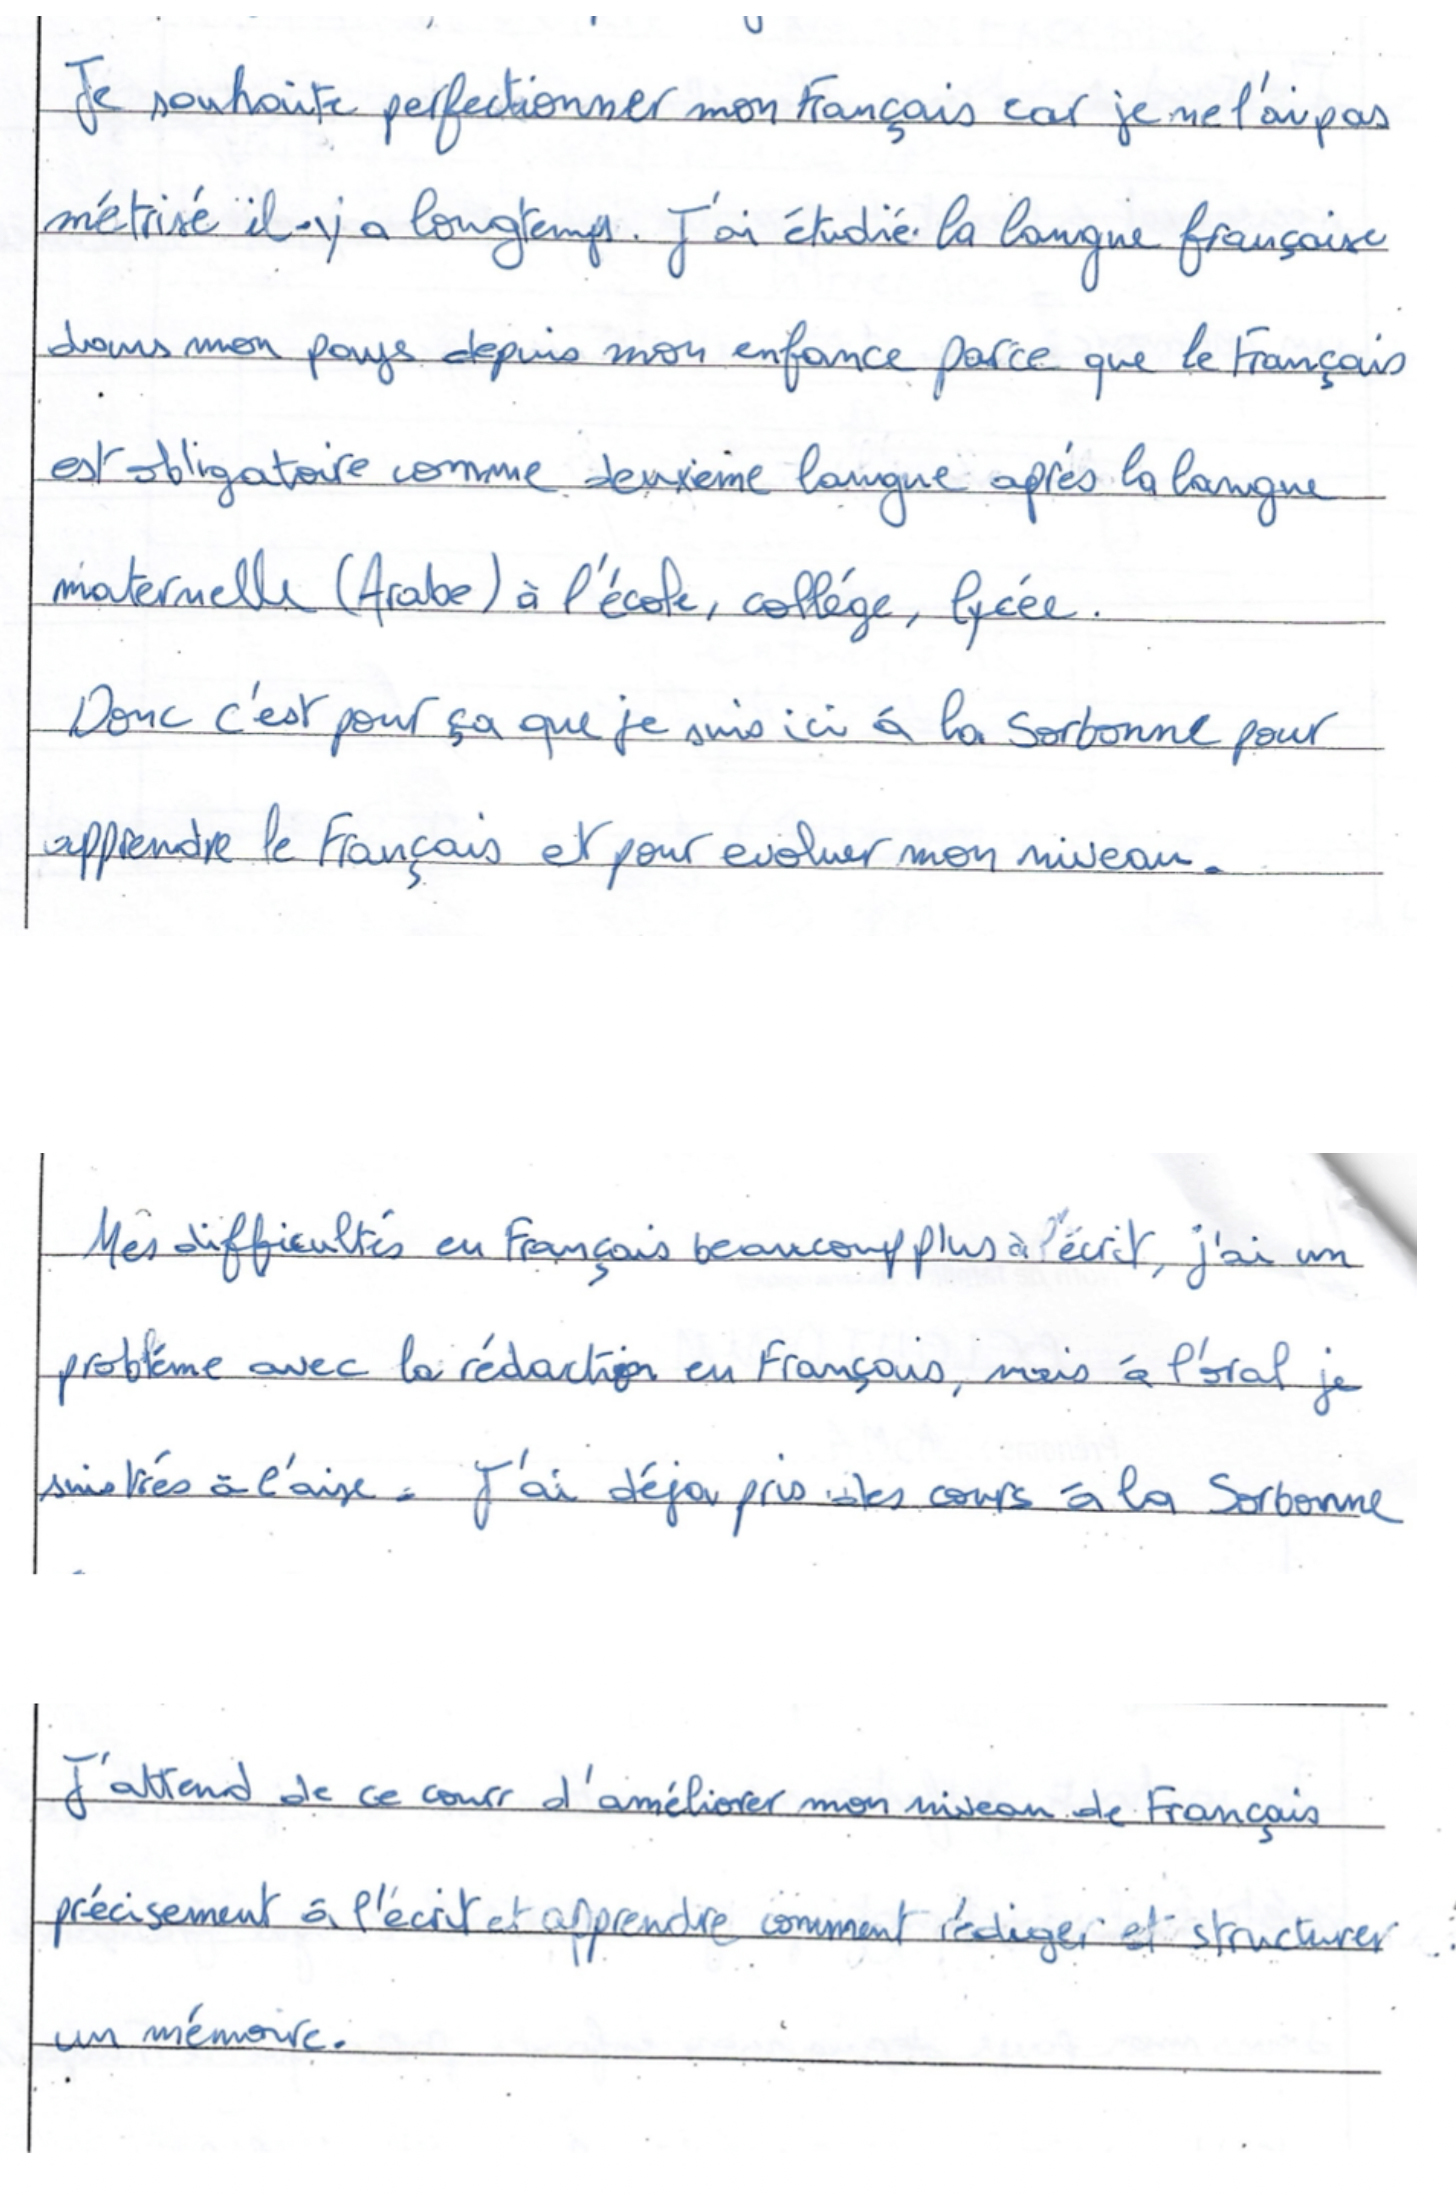 Je souhaite perfectionner mon Français car je ne l'ai pas
métrisé il-y a longtemps. J'ai étudié la langue française
dans mon pays depuis mon enfance parce que le Français
est obligatoire comme deuxieme langue aprés la langue
maternelle (Arabe) à l'école, collége, lycée.
Donc c'est pour ça que je suis ici à la Sorbonne pour
apprendre le Français et pour evoluer mon niveau.
Mes difficultés en Français beaucoup plus à l'écrit, j'ai un
probléme avec la rédaction en Français, mais à l'oral je
suis trés à l'aise. J'ai déja pris des cours à la Sorbonne
J'attend de ce cour d'améliorer mon niveau de Français
précisement à l'écrit et apprendre comment rédiger et structurer
un mémoire.